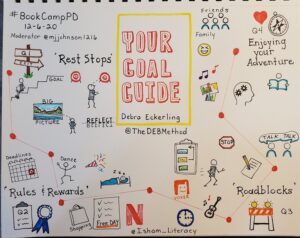 #BookCampPD
12-6-20
Moderator @mjjohnson1216
'Rest Stops'
GOAL
BIG PICTURE
REFLECT
YOUR
GOAL
GUIDE
Debra Eckerling
@TheDEBMethod
Friends
Family
Q4
Enjoying
your
Adventure
Deadlines
Dance
'Rules & Rewards'
Q2
Shopping
Free DAY
N
@Isham_Literacy
VOXER
STOP
TALK TALK
'Roadblocks'
Q3